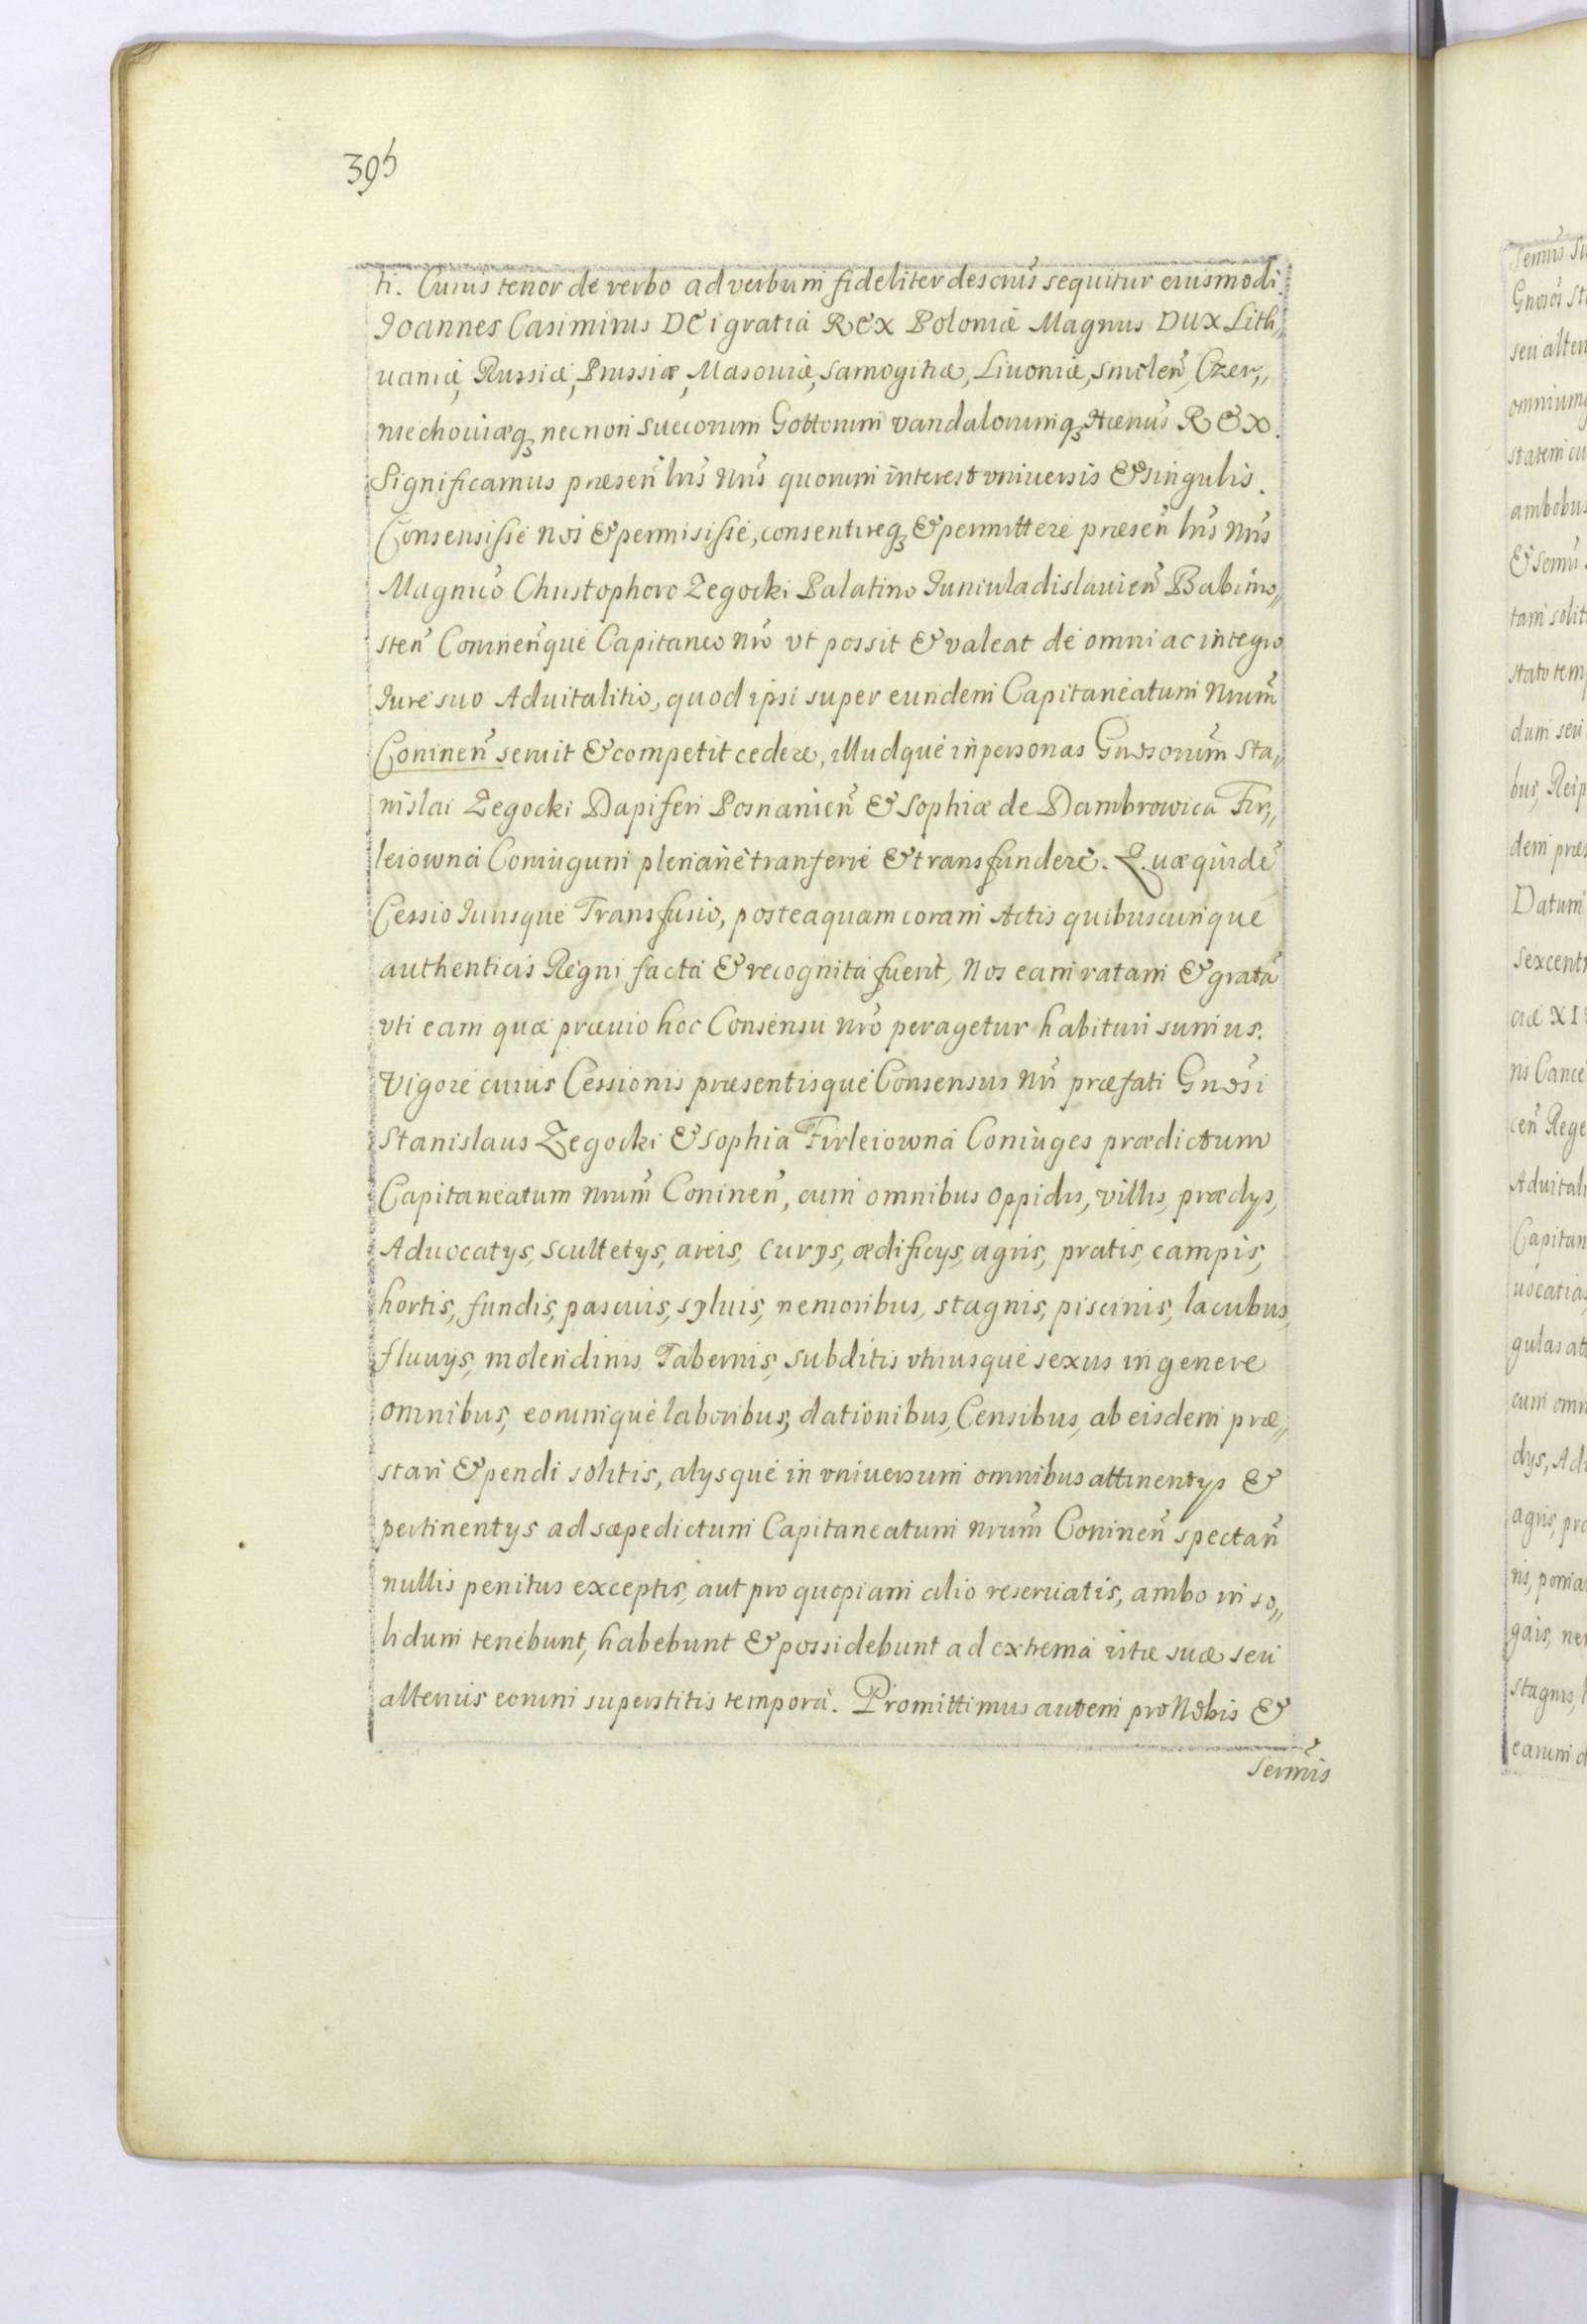 395
ti. Cuius tenor de verbo ad verbum fideliter descrĩus sequitur eiusmodi.
Joannes Casimirus DEi gratia REX Poloniæ Magnus DUX Lith„
uaniæ, Russiæ, Prussiæ, Masouiæ, Samogitiæ, Liuoniæ, Smolen̄, Czer„
niechouiæq₃ necnon Suecorum Gottorum Vandalorumq₃ Hærius̃ REX.
Significamus præsen̄ lrĩs nrĩs quorum interest vniuersis & singulis.
Consensisse nos & permisisse, consentireq₃ & permittere præsen̄ lrĩs nrĩs
Magnĩco Christophoro Zegocki Palatino Juniuladislauien̄ Babimo„
sten̄ Coninen̄que Capitaneo nrõ vt possit & valeat de omni ac integro
Jure suo Aduitalitio, quod ipsi super eundem Capitaneatum nrum̃
Coninen̄ seruit & competit cedere, illudque in personas Gnosorum̃ Sta„
nislai Zegocki Dapiferi Posnanien̄ & Sophiæ de Dambrowica Fir„
leiowna Coniugum plenarie tranferre & transfundere. Quæquidẽ
Cessio Jurisque Transfusio, posteaquam coram Actis quibuscunque
authenticis Regni facta & recognita fuerit, Nos eam ratam & gratã
vti eam quæ præuio hoc Consensu nrõ peragetur habituri sumus.
Vigore cuius Cessionis præsentisque Consensus nrĩ præfati Gnosĩ
Stanislaus Zegocki & Sophia Firleiowna Coniuges prædictum
Capitaneatum nrum̃ Coninen̄, cum omnibus oppidis, villis, prædys,
Aduocatys, scultetys, areis, curys, ædificys, agris, pratis, campis,
hortis, fundis, pascuis, syluis, nemoribus, stagnis, piscinis, lacubus,
fluuys, molendinis, Tabernis, subditis vtriusque sexus in genere
omnibus, eorumque laboribus, dationibus, Censibus, ab eisdem præ„
stari & pendi solitis, alysque in vniuersum omnibus attinentys &
pertinentys ad sæpedictum Capitaneatum nrum̃ Coninen̄ spectan̄
nullis penitus exceptis, aut pro quopiam alio reseruatis, ambo in so„
lidum tenebunt, habebunt & possidebunt ad extrema vitæ suæ seu
alterius eorum superstitis tempora. Promittimus autem pro Nobis &
Sermĩs